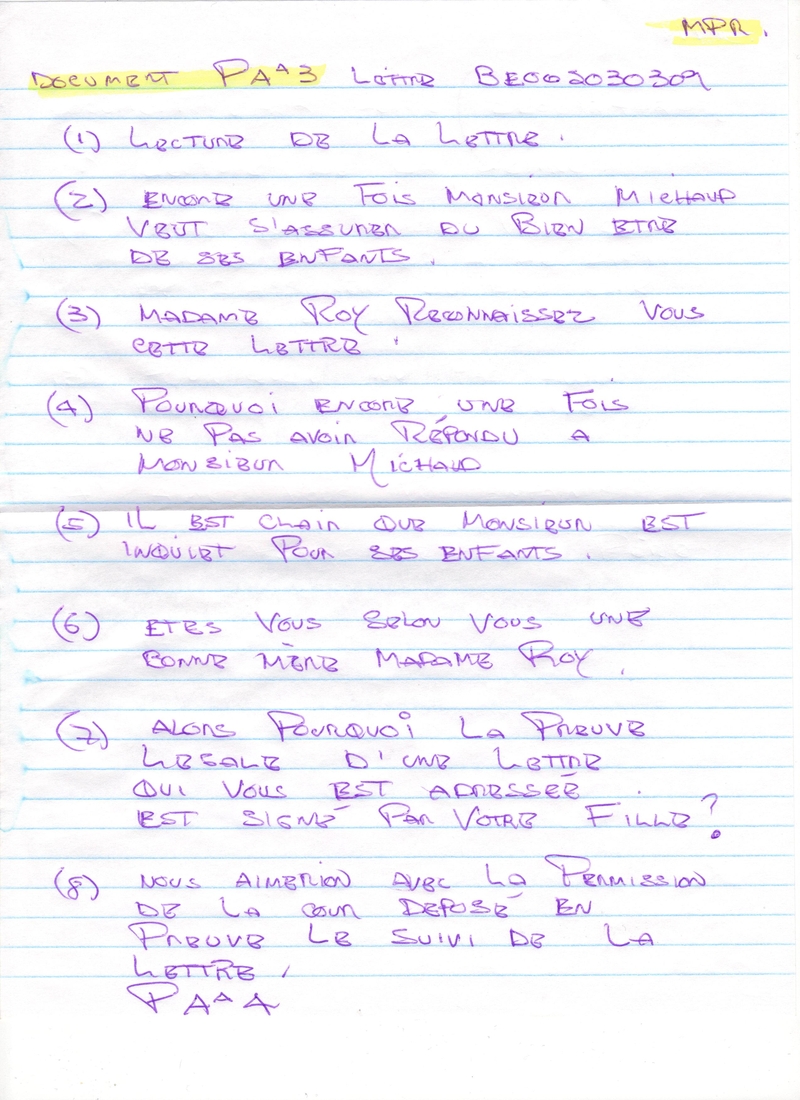 MPR.
DOCUMENT PAA3 LETTRE BE002030309
(1) LECTURE DE LA LETTRE.
(2) ENCORE UNE FOIS MONSIEUR MICHAUD
VEUT S'ASSURER DU BIEN ETRE
DE SES ENFANTS.
(3) MADAME ROY RECONNAISSEZ VOUS
CETTE LETTRE.
(4) POURQUOI ENCORE UNE FOIS
NE PAS AVOIR RÉPONDU A
MONSIEUR MICHAUD
(5) IL EST CLAIR QUE MONSIEUR EST
INQUIET POUR SES ENFANTS.
(6) ETES VOUS SELON VOUS UNE
BONNE MÈRE MADAME ROY.
(7) ALORS POURQUOI LA PREUVE
LEGALE D'UNE LETTRE
QUI VOUS EST ADRESSÉE
EST SIGNÉ PAR VOTRE FILLE?
(8) NOUS AIMERION AVEC LA PERMISSION
DE LA COUR DEPOSÉ EN
PREUVE LE SUIVI DE LA
LETTRE,
PAA4